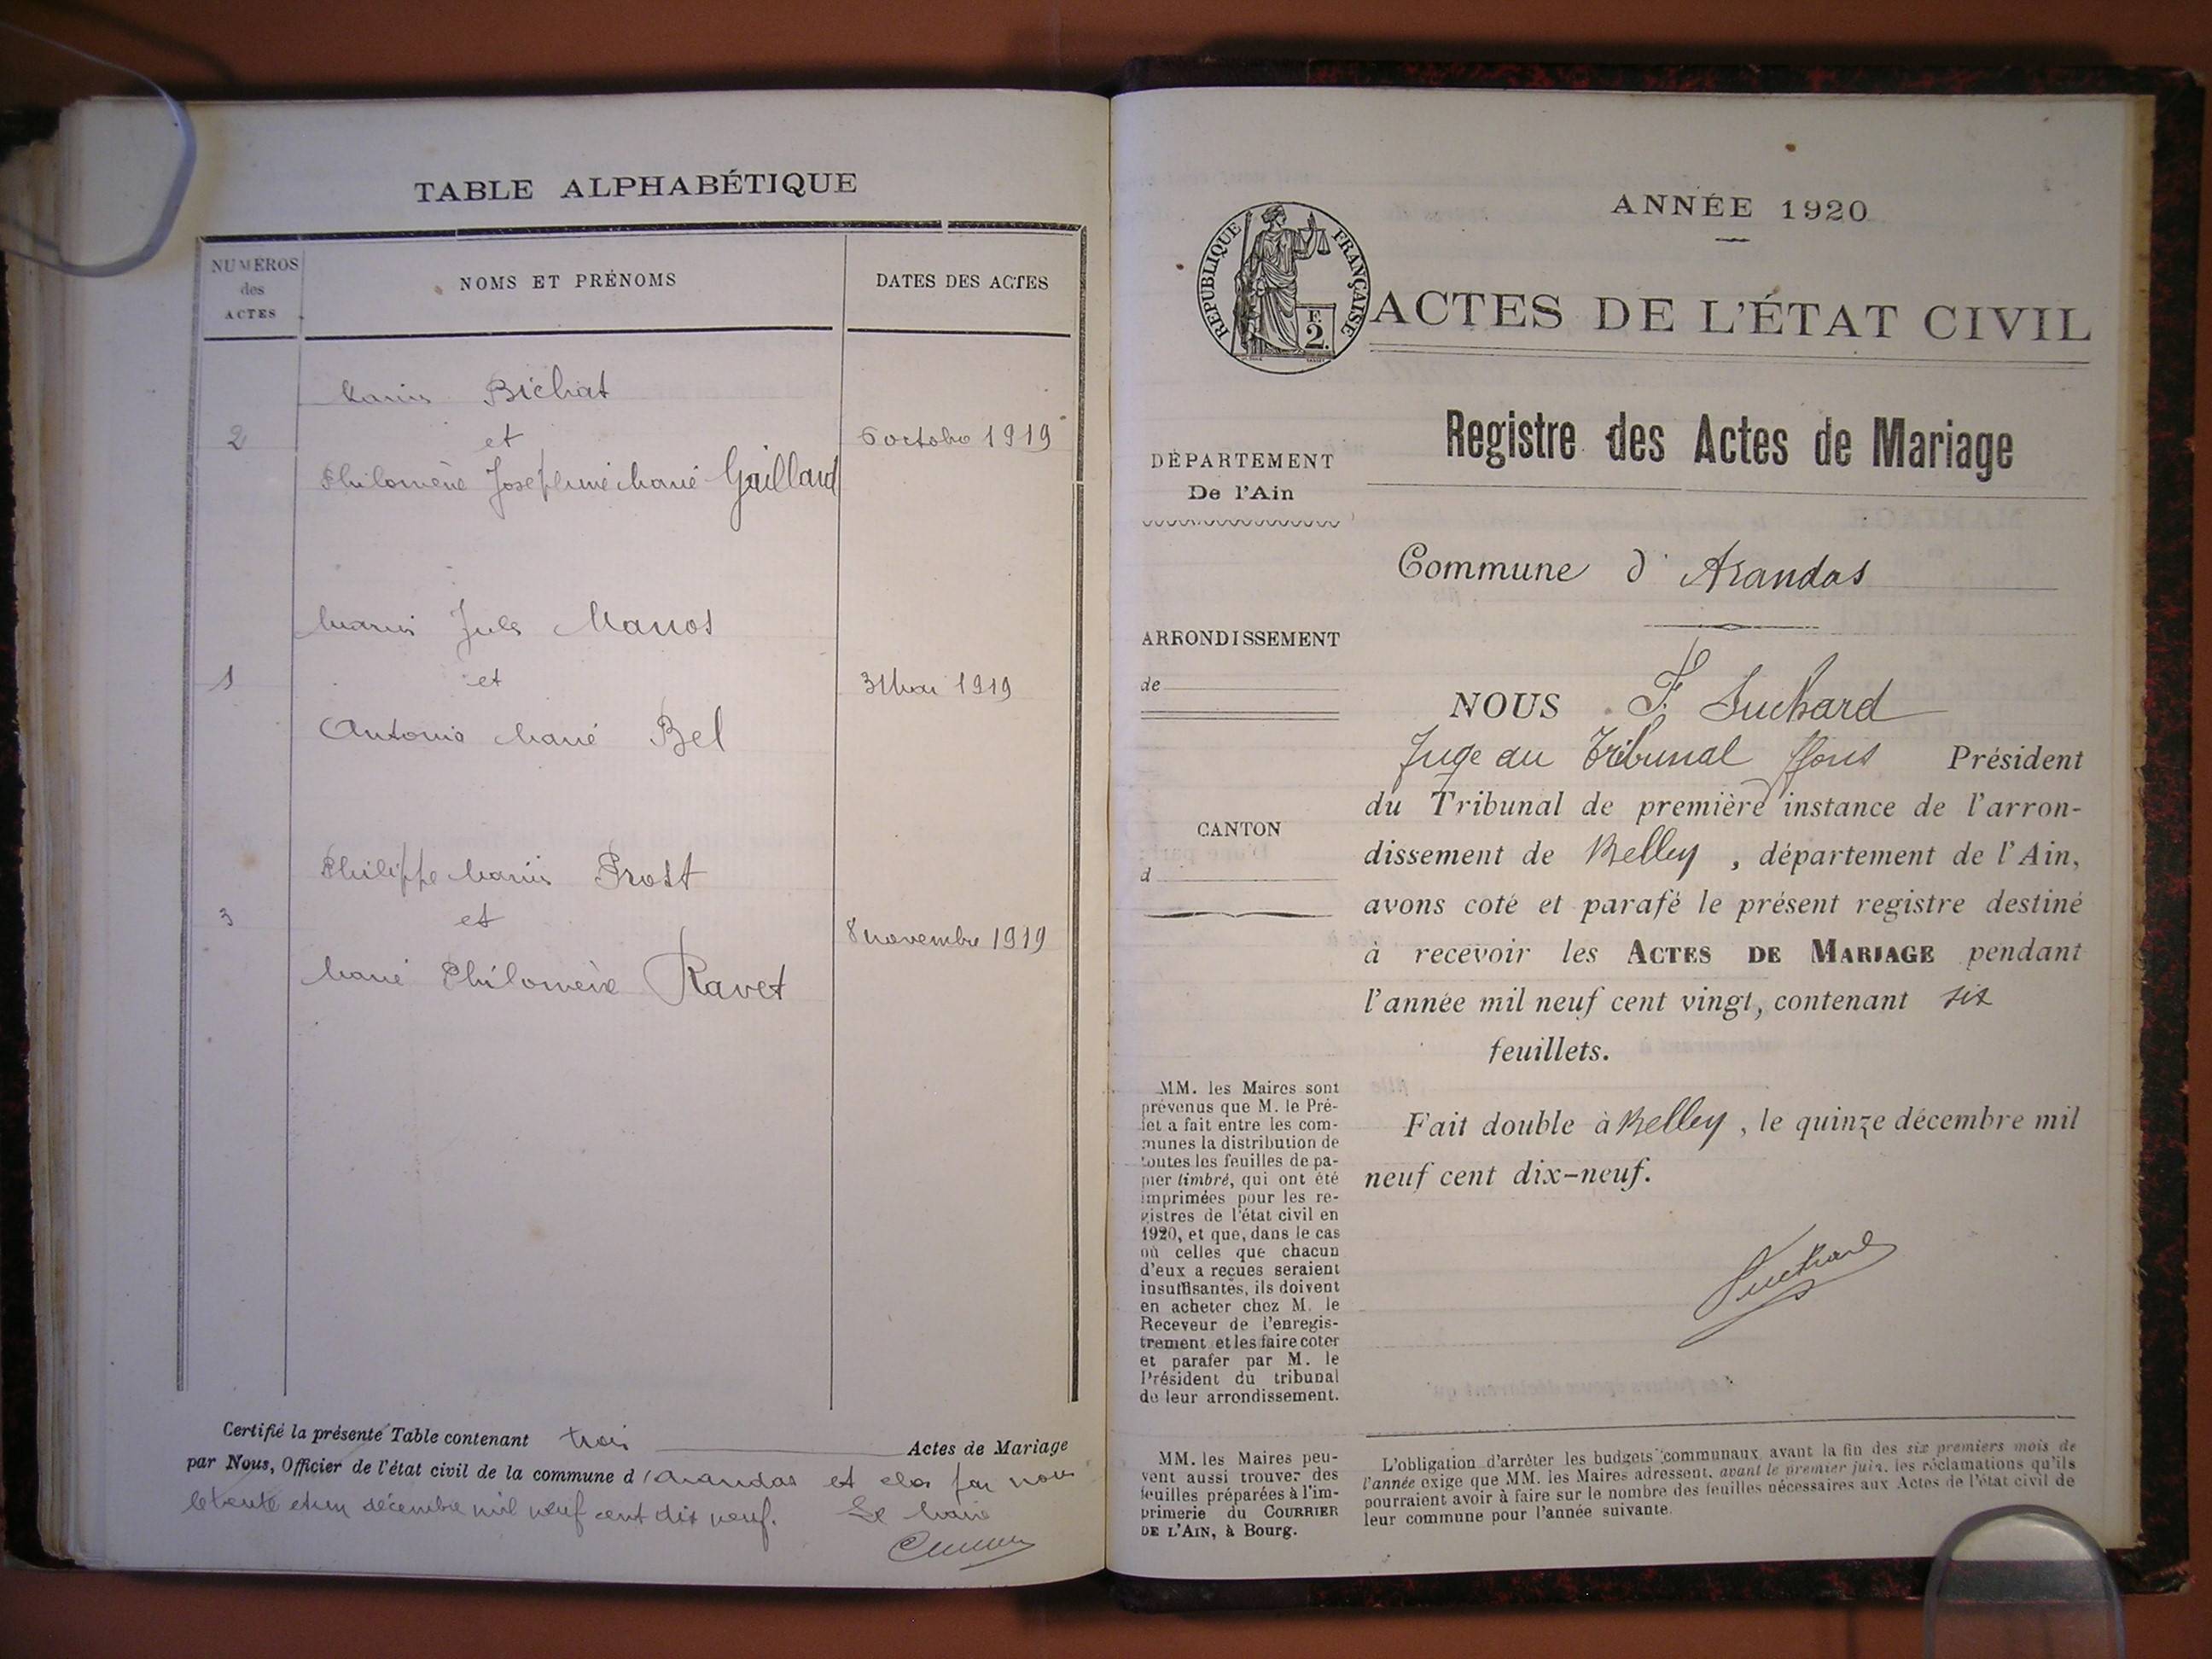 TABLE ALPHABÉTIQUE
NUMÉROS
des
ACTES
NOMS ET PRÉNOMS
DATES DES ACTES
Bichat
2
et
6 octobre 1919
Philomène Joséphine Marie Gaillard
Marius Jules Manos
1
et
31 Mai 1919
Antonia Marie Bel
Philippe Marius Prost
3
et
8 novembre 1919
Marie Philomène Ravet
Certifié la présente Table contenant trois Actes de Mariage
par Nous, Officier de l'état civil de la commune d'Arandas et clos par nous
le trente et un décembre mil neuf cent dix neuf. Le Maire
ANNÉE 1920
RÉPUBLIQUE FRANÇAISE
F.
2.
ACTES DE L'ÉTAT CIVIL
Registre des Actes de Mariage
DÉPARTEMENT
De l'Ain
Commune d'Arandas
ARRONDISSEMENT
de
CANTON
d
NOUS F. Suchard
Juge au Tribunal ffons Président
du Tribunal de première instance de l'arron-
dissement de Belley, département de l'Ain,
avons coté et parafé le présent registre destiné
à recevoir les ACTES DE MARIAGE pendant
l'année mil neuf cent vingt, contenant six
feuillets.
Fait double à Belley, le quinze décembre mil
neuf cent dix-neuf.
Suchard
MM. les Maires sont
prévenus que M. le Pré-
fet a fait entre les com-
munes la distribution de
toutes les feuilles de pa-
pier timbré, qui ont été
imprimées pour les re-
gistres de l'état civil en
1920, et que, dans le cas
où celles que chacun
d'eux a reçues seraient
insuffisantes, ils doivent
en acheter chez M. le
Receveur de l'enregis-
trement et les faire coter
et parafer par M. le
Président du tribunal
de leur arrondissement.
MM. les Maires peu-
vent aussi trouver des
feuilles préparées à l'im-
primerie du COURRIER
DE L'AIN, à Bourg.
L'obligation d'arrêter les budgets communaux avant la fin des six premiers mois de
l'année exige que MM. les Maires adressent, avant le premier juin, les réclamations qu'ils
pourraient avoir à faire sur le nombre des feuilles nécessaires aux Actes de l'état civil de
leur commune pour l'année suivante.